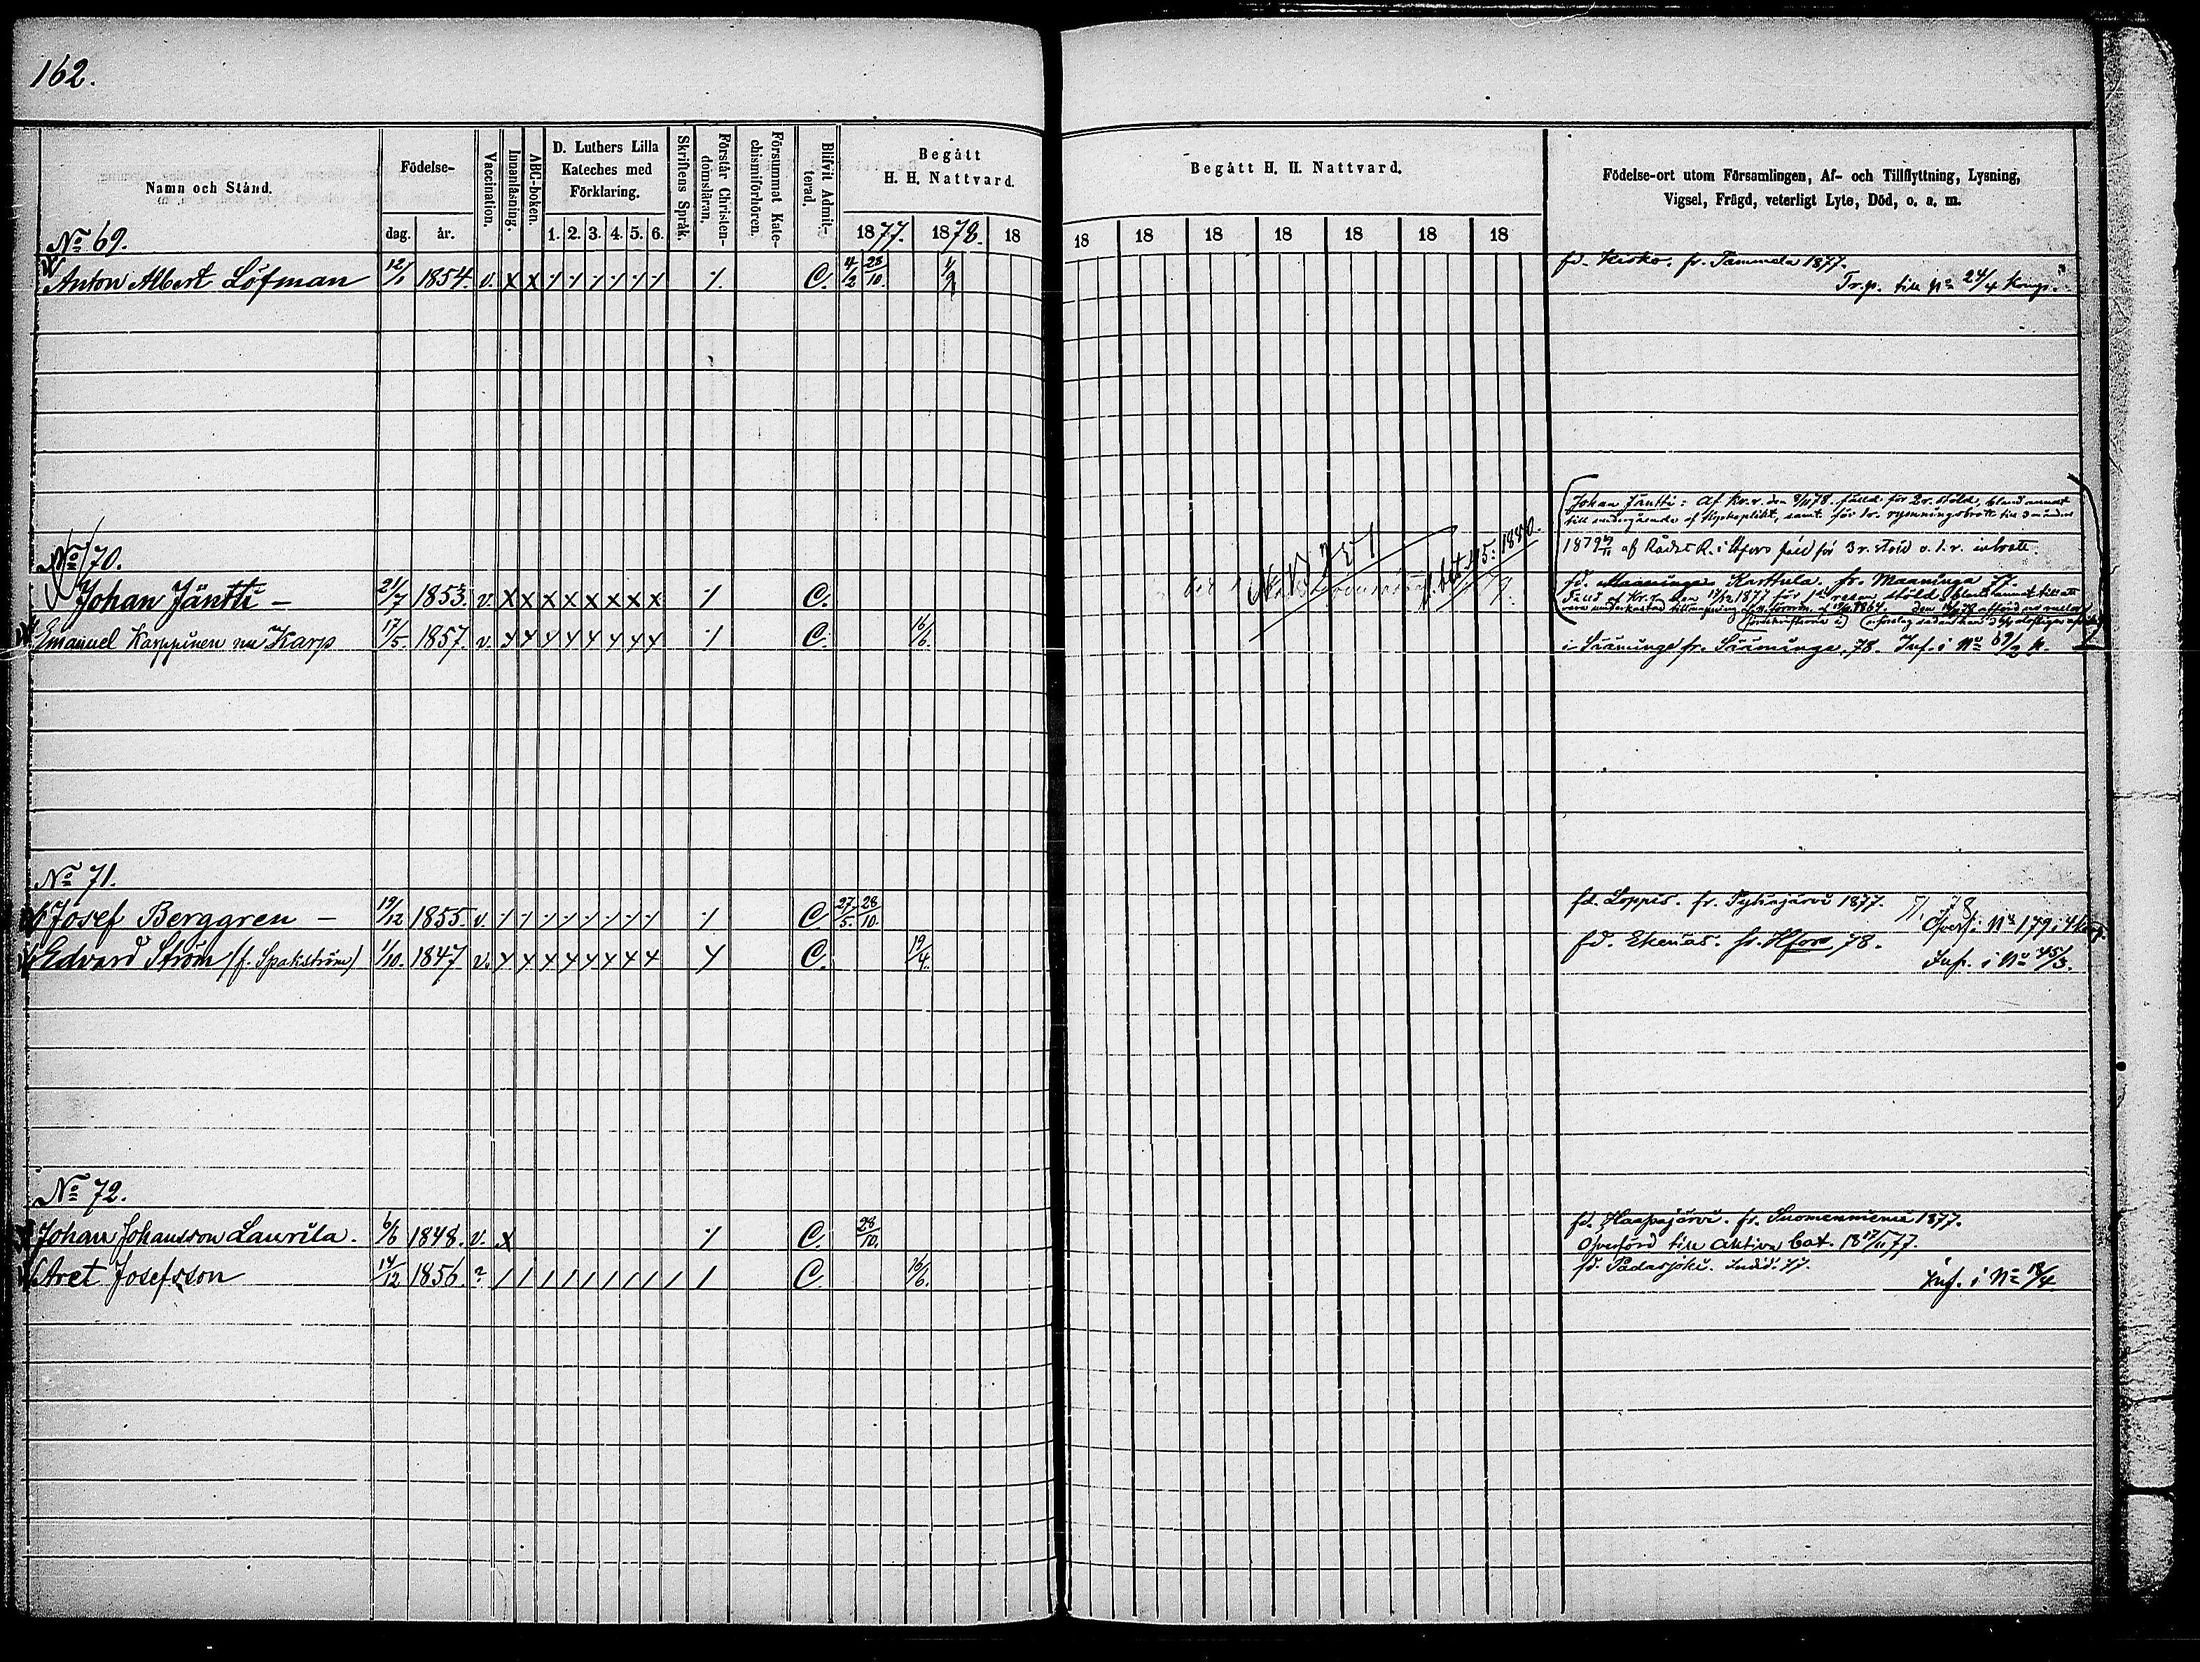 162.
Namn och Stånd.
Födelse-
dag.
år.
Vaccination.
Innanläsning.
ABC-boken.
D. Luthers Lilla
Kateches med
Förklaring.
1. 2. 3. 4. 5. 6.
Skriftens Språk.
Förstår Christen-
domsläran.
Försummat Kate-
chismiförhören.
Blifvit Admit-
terad.
Begått
H. H. Nattvard.
1877. 1878. 18
Begått H. H. Nattvard.
18 18 18 18 18 18 18
Födelse-ort utom Församlingen, Af- och Tillflyttning, Lysning,
Vigsel, Frägd, veterligt Lyte, Död, o. a. m.
No 69.
Anton Albert Löfman 12/1 1854. v. x x C. 4/2 28/10.
fd. Kisko. fr. Tammela 1877.
Tr.p. till No 24/4 Komp.
Johan Jäntti: af Kr.r. den 8/11 78. fälld för 2 r. stöld, bland annat
1879 af Rådst.R. i Hfors fäld för 3 r. stöld o. 1. r. inbrott.
No 70.
Johan Jäntti – 21/7 1853. v. x x x x x x x x C.
fd. Maaninga Karttula. fr. Maaninga 77.
Fälld af Kr.r. den 17/12 1877 för 1sta resan stöld, bland annat till att
Emanuel Karppinen nu Karp 17/5. 1857. v. C. 16/6.
i Sääminge fr. Sääminge. 78. Inf. i No 69/2 K.
No 71.
Josef Berggren – 19/12 1855. v. C. 27/5. 28/10.
fd. Loppis. fr. Pyhäjärvi 1877.
Öfverf. i No 179 i 4 Komp.
Edvard Ström (f. Spakström) 1/10. 1847. v. C. 19/4.
fd. Ekenäs. fr. Hfors 78.
Inf. i No 45/3.
No 72.
Johan Johansson Laurila. 6/6 1848. v. x C. 28/10.
fd. Haapajärvi. fr. Suomenniemi 1877.
Öfverförd till Aktiva bat. 18 17/11 77.
Aret Josefsson 14/12 1856. ? C. 16/6.
fd. Padasjoki. Indid. 77.
Inf. i No 18/4.